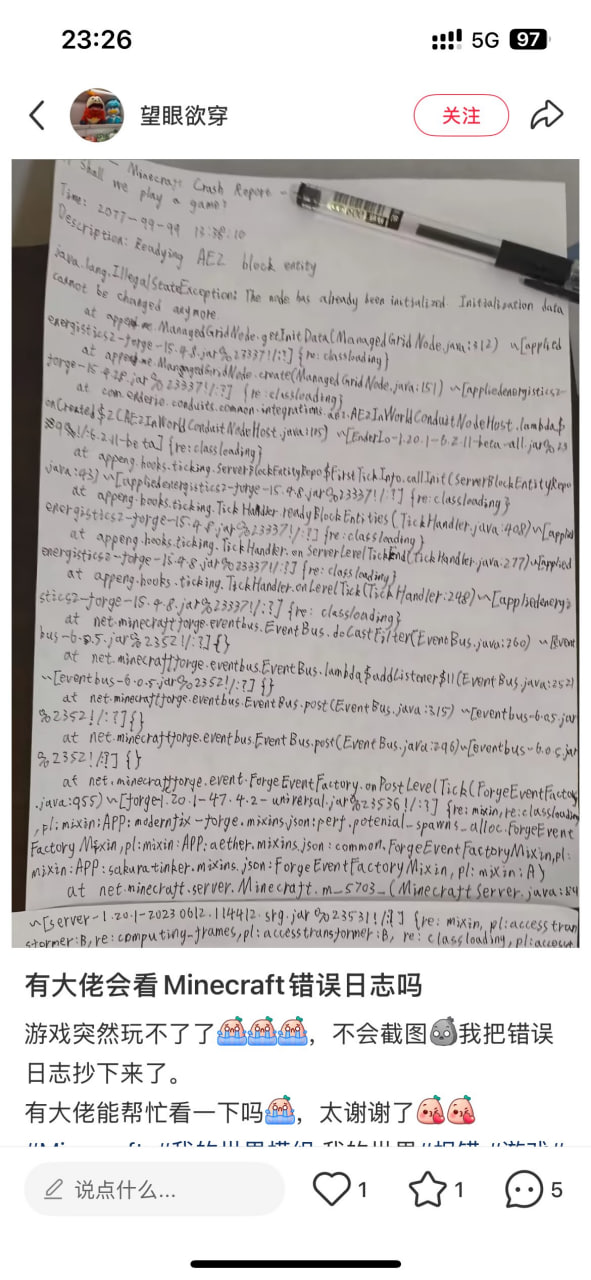 23:26
5G 97
望眼欲穿
关注
Minecraft Crash Report
Shall we play a game?
Time: 2077-99-99 13:38:10
Description: Readying AE2 block entity
java.lang.IllegalStateException: The node has already been initialized. Initialization data
cannot be changed anymore.
at appeng.me.ManagedGridNode.getInitData(ManagedGridNode.java:312) ~[applied
energistics2-forge-15.4.8.jar%23337!/:?] {re:classloading}
at appeng.me.ManagedGridNode.create(ManagedGridNode.java:151) ~[appliedenergistics2-
forge-15.4.8.jar%23337!/:?] {re:classloading}
at com.enderio.conduits.common.integrations.ae2.AE2InWorldConduitNodeHost.lambda$
onCreated$2(AE2InWorldConduitNodeHost.java:105) ~[EnderIo-1.20.1-6.2.11-beta-all.jar%23
!/6.2.11-beta] {re:classloading}
at appeng.hooks.ticking.ServerBlockEntityRepo$FirstTickInfo.callInit(ServerBlockEntityRepo
java:43) ~[appliedenergistics2-forge-15.4.8.jar%23337!/:?] {re:classloading}
at appeng.hooks.ticking.TickHandler.readyBlockEntities(TickHandler.java:408)~[applied
energistics2-forge-15.4.8.jar%23337!/:?] {re:classloading}
at appeng.hooks.ticking.TickHandler.onServerLevelTickEnd(TickHandler.java:277)~[applied
energistics2-forge-15.4.8.jar%23337!/:?] {re:classloading}
at appeng.hooks.ticking.TickHandler.onLevelTick(TickHandler:248) ~[appliedenergi
stics2-forge-15.4.8.jar%23337!/:?] {re:classloading}
at net.minecraftforge.eventbus.EventBus.doCastFilter(EventBus.java:260) ~[event
bus-6.0.5.jar%2352!/:?]{}
at net.minecraftforge.eventbus.EventBus.lambda$addListener$11(EventBus.java:252)
~[eventbus-6.0.5.jar%2352!/:?] {}
at net.minecraftforge.eventbus.EventBus.post(EventBus.java:315) ~[eventbus-6.0.5.jar
%2352!/:?]{}
at net.minecraftforge.eventbus.EventBus.post(EventBus.java:296)~[eventbus-6.0.5.jar
%2352!/:?] {}
at net.minecraftforge.event.ForgeEventFactory.onPostLevelTick(ForgeEventFactory
.java:955) ~[forge-1.20.1-47.4.2-universal.jar%23536!/:?] {re:mixin,re:classloading
,pl:mixin:APP:modernfix-forge.mixins.json:perf.potenial-spawns-alloc.ForgeEvent
Factory Mixin,pl:mixin:APP:aether.mixins.json:common.ForgeEventFactoryMixin,pl:
mixin:APP:sakuratinker.mixins.json:ForgeEventFactoryMixin,pl:mixin:A}
at net.minecraft.server.Minecraft.m_5703_(MinecraftServer.java:84
~[server-1.20.1-20230612.114412-srg.jar%23531!/:?] {re:mixin,pl:accesstran
sformer:B,re:computing-frames,pl:accesstransformer:B,re:classloading,pl:accesst
有大佬会看Minecraft错误日志吗
游戏突然玩不了了，不会截图我把错误
日志抄下来了。
有大佬能帮忙看一下吗，太谢谢了
说点什么...
1
1
5